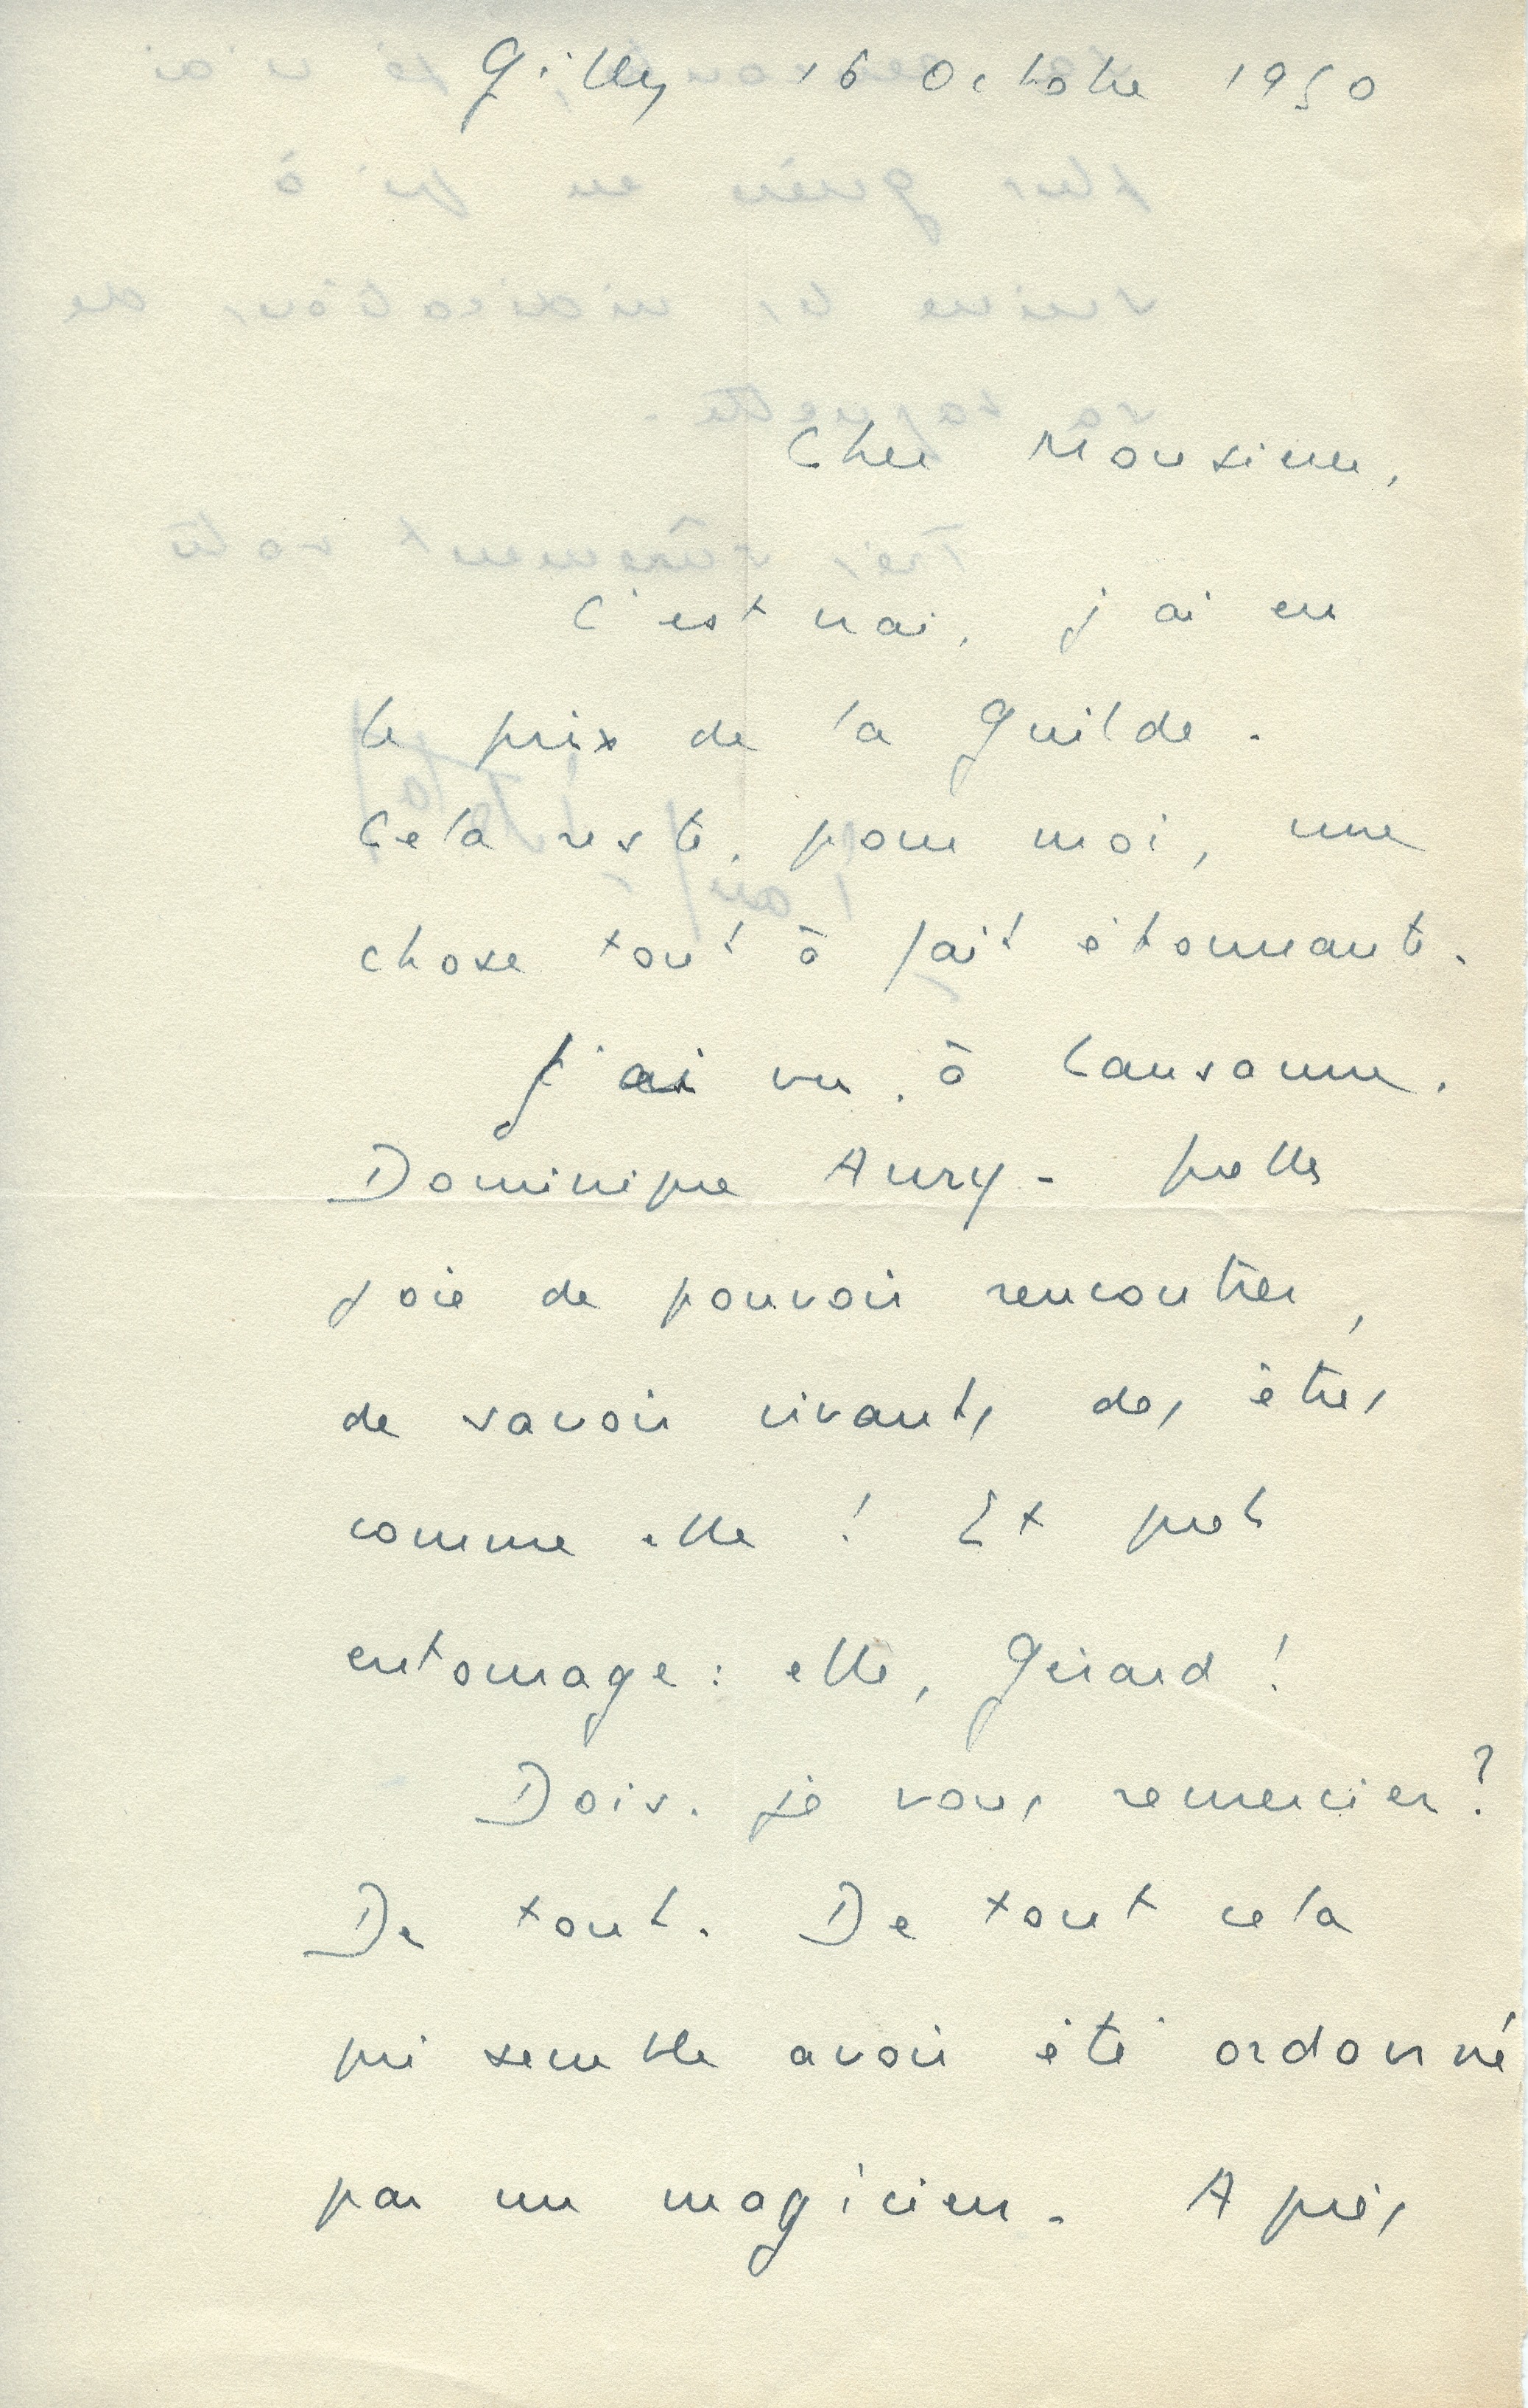 Gilly 16 Octobre 1950
Cher Monsieur,
C'est vrai, j'ai eu
le prix de la Guilde.
Cela reste, pour moi, une
chose tout à fait étonnante.
J'ai vu, à Lausanne,
Dominique Aury. Quelle
joie de pouvoir rencontrer,
de savoir vivants des êtres
comme elle ! Et quel
entourage : elle, Gérard !
Dois-je vous remercier ?
De tout. De tout cela
qui semble avoir été ordonné
par un magicien. Après